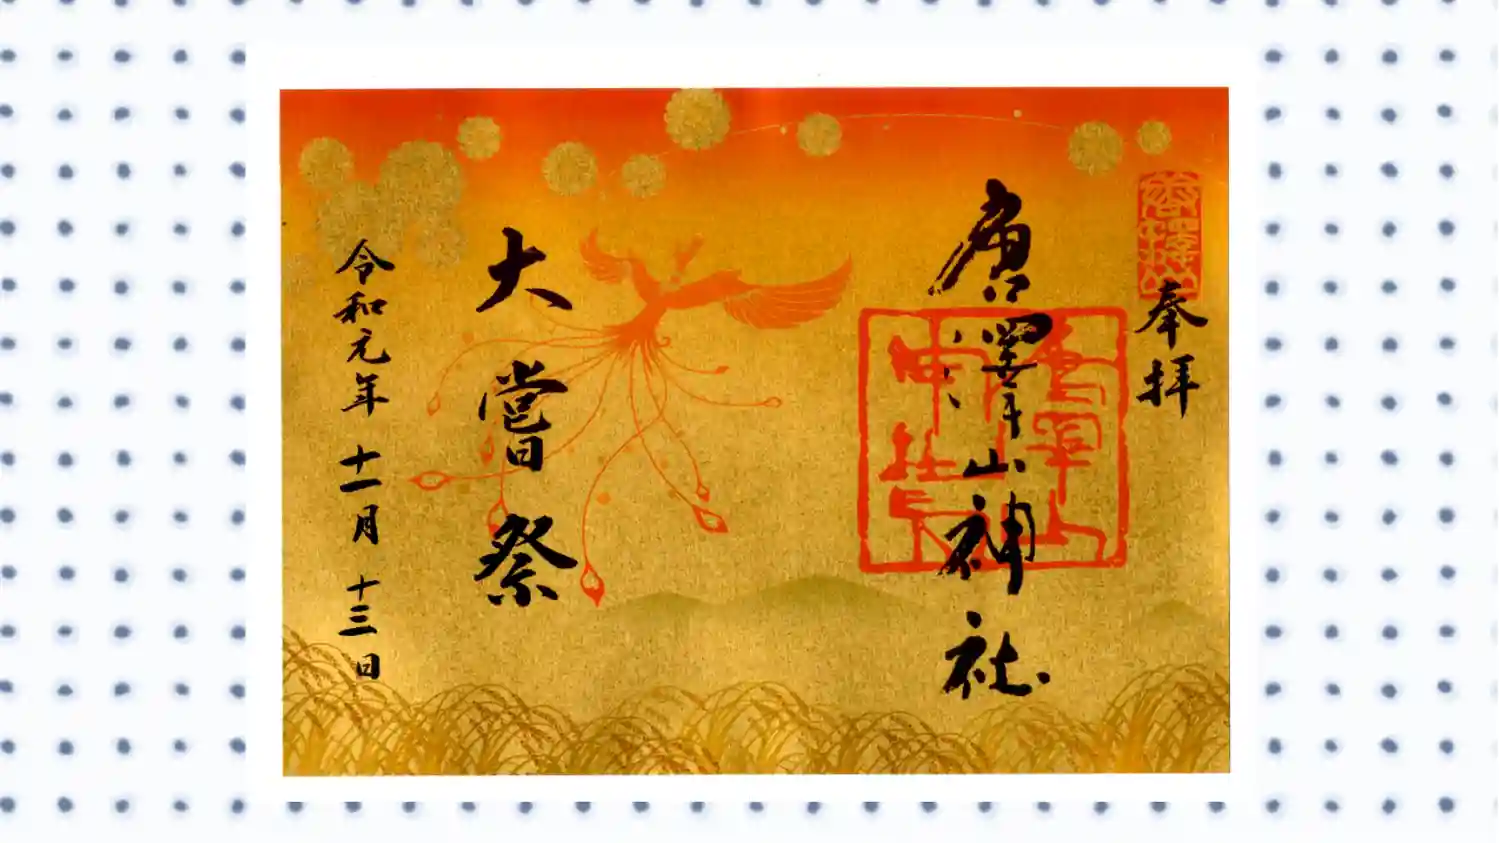 奉拝
唐澤山神社
大嘗祭
令和元年十一月十三日